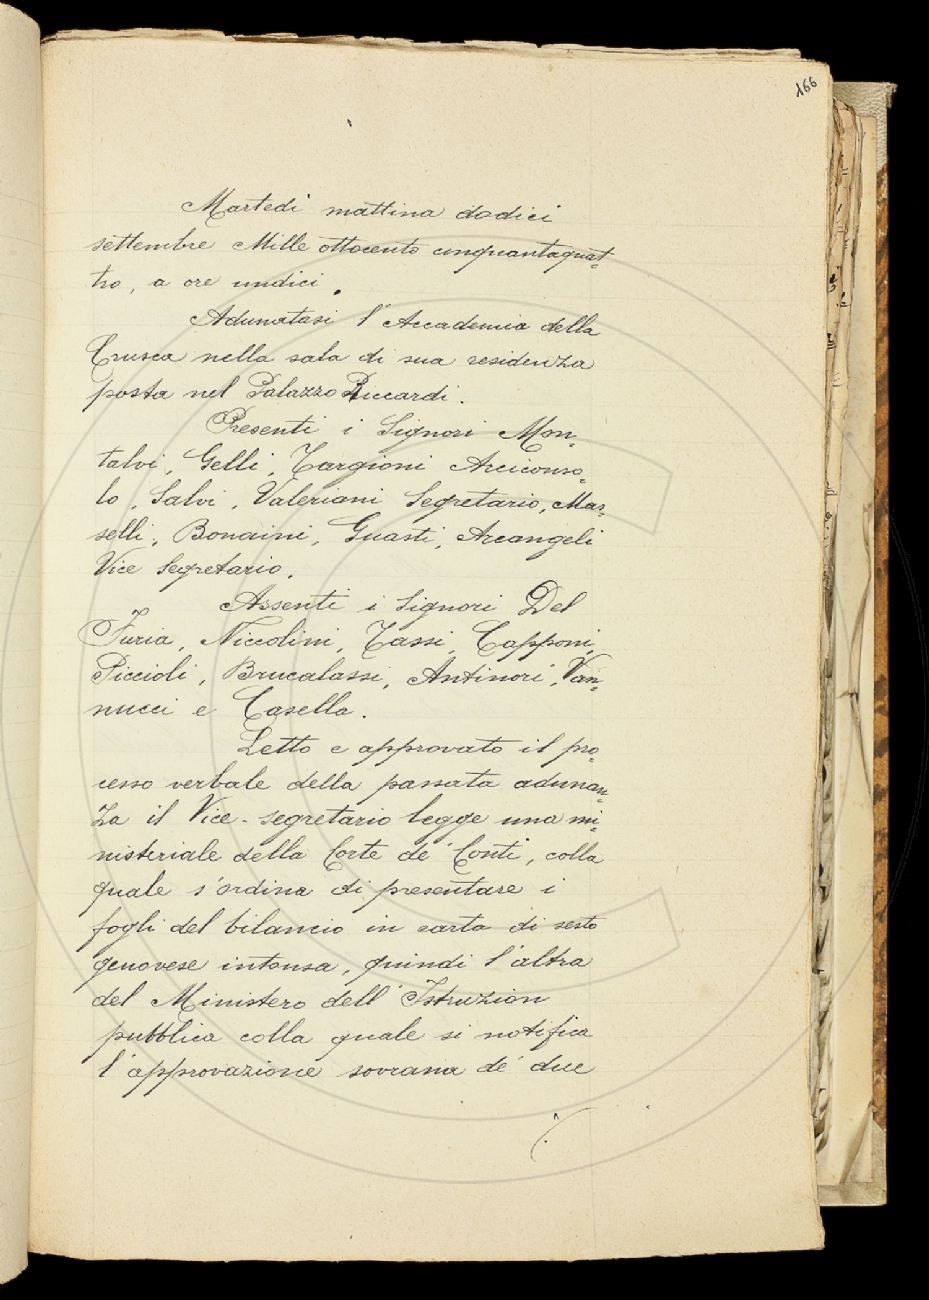 166
Martedì mattina dodici
settembre Mille ottocento cinquantaquat=
tro, a ore undici.
Adunatasi l'Accademia della
Crusca nella sala di sua residenza
posta nel Palazzo Riccardi.
Presenti i Signori Mon=
talvi, Gelli, Targioni Arciconso=
lo, Salvi, Valeriani Segretario, Mas=
selli, Bonaini, Guasti, Arcangeli
Vice Segretario.
Assenti i Signori Del
Furia, Niccolini, Tassi, Capponi,
Piccioli, Brucalassi, Antinori, Van=
nucci e Casella.
Letto e approvato il pro=
cesso verbale della passata adunan=
za il Vice-segretario legge una mi=
nisteriale della Corte de' Conti, colla
quale s'ordina di presentare i
fogli del bilancio in carta di sesto
genovese intonsa, quindi l'altra
del Ministero dell'Istruzion
pubblica colla quale si notifica
l'approvazione sovrana de' due